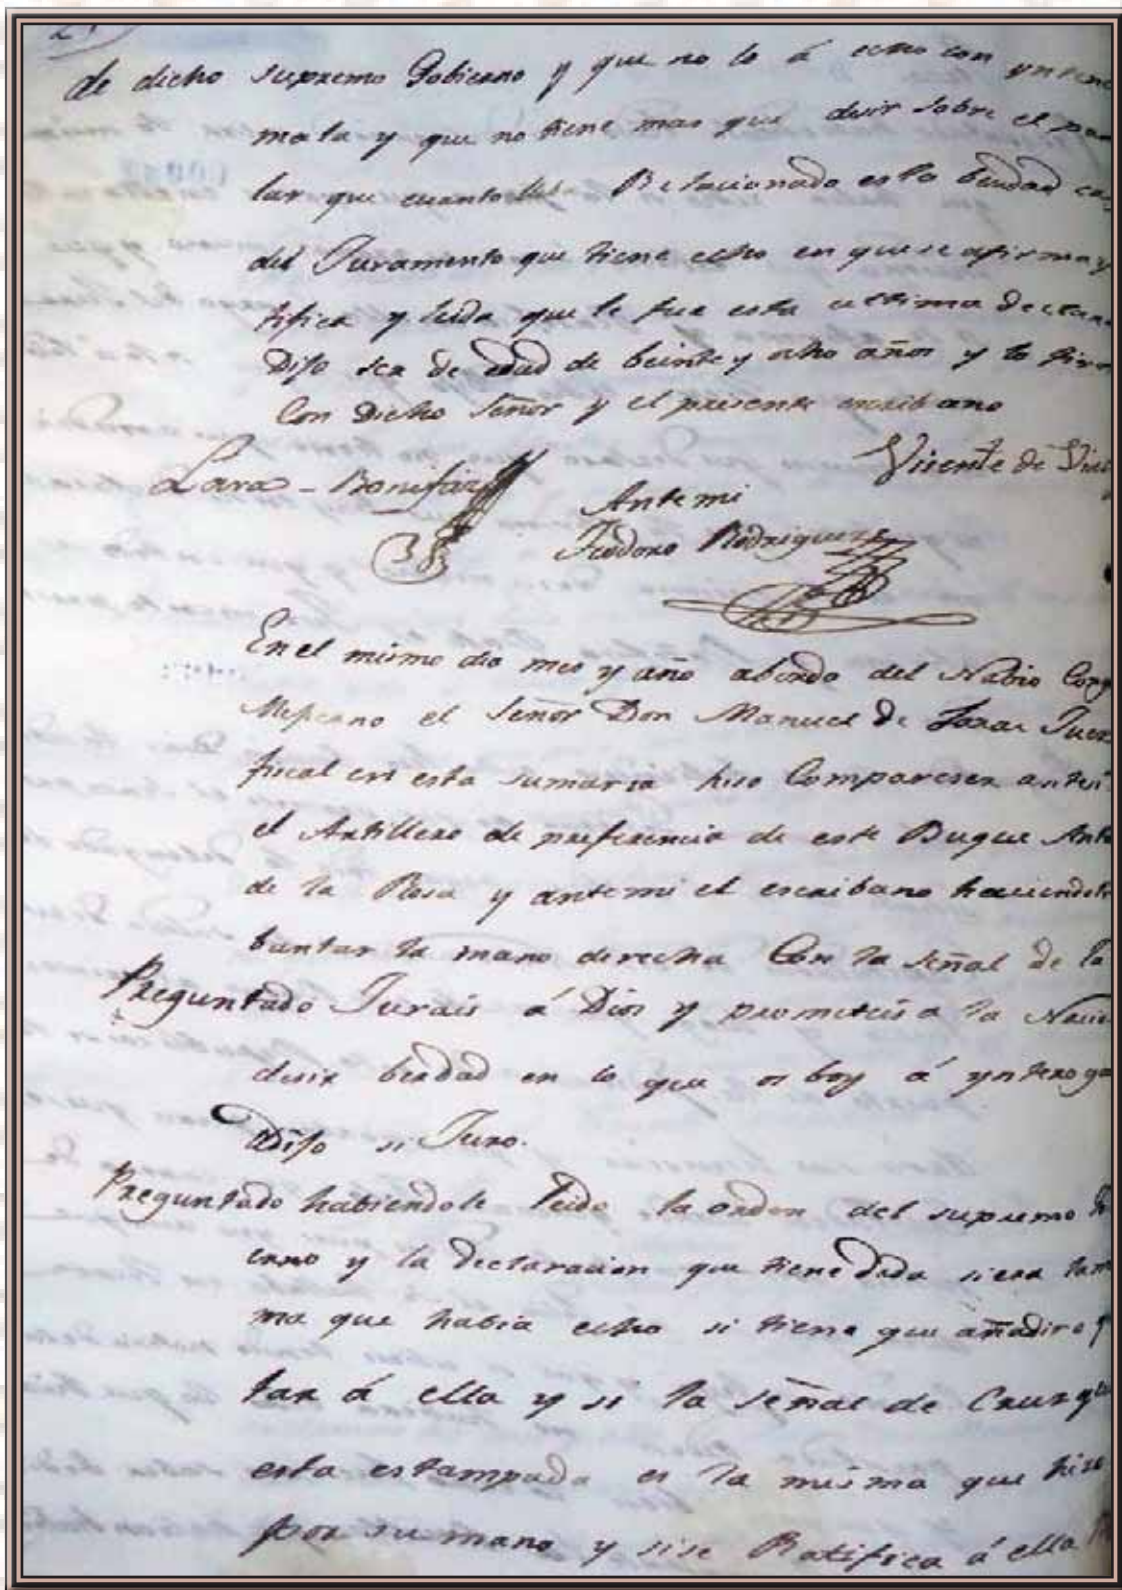 de dicho supremo Gobierno y que no lo á echo con yntenc
mala y que no tiene mas que desir sobre el par
lar que cuanto Relacionado es la berdad
del Juramento que tiene echo en que se afirma y
tifica y leida que le fue esta ultima declara
Dijo ser de edad de beinte y ocho años y lo firm
Con Dicho Señor y el presente escribano
Visente de
Lara - Bonifaz
Antemi
Teodoro Rodriguez
En el mismo dia mes y año abordo del Nabio Cong
Mejicano el Señor Don Manuel de Lara Juez
fiscal en esta sumaria hiso Compareser antesi
el Artillero de preferencia de este Buque Anto
de la Rosa y antemi el escribano haciendole
bantar la mano derecha Con la señal de la
Preguntado Jurais á Dios y prometeis a la Nacio
desir berdad en lo que os boy á ynteroga
Dijo si Juro.
Preguntado habiendole leido la orden del supremo Go
erno y la declaracion que tiene dada si era la m
ma que habia echo si tiene que añadir o q
tar á ella y si la señal de Cruz que
esta estampada es la misma que hiso
por su mano y si se Ratifica á ella